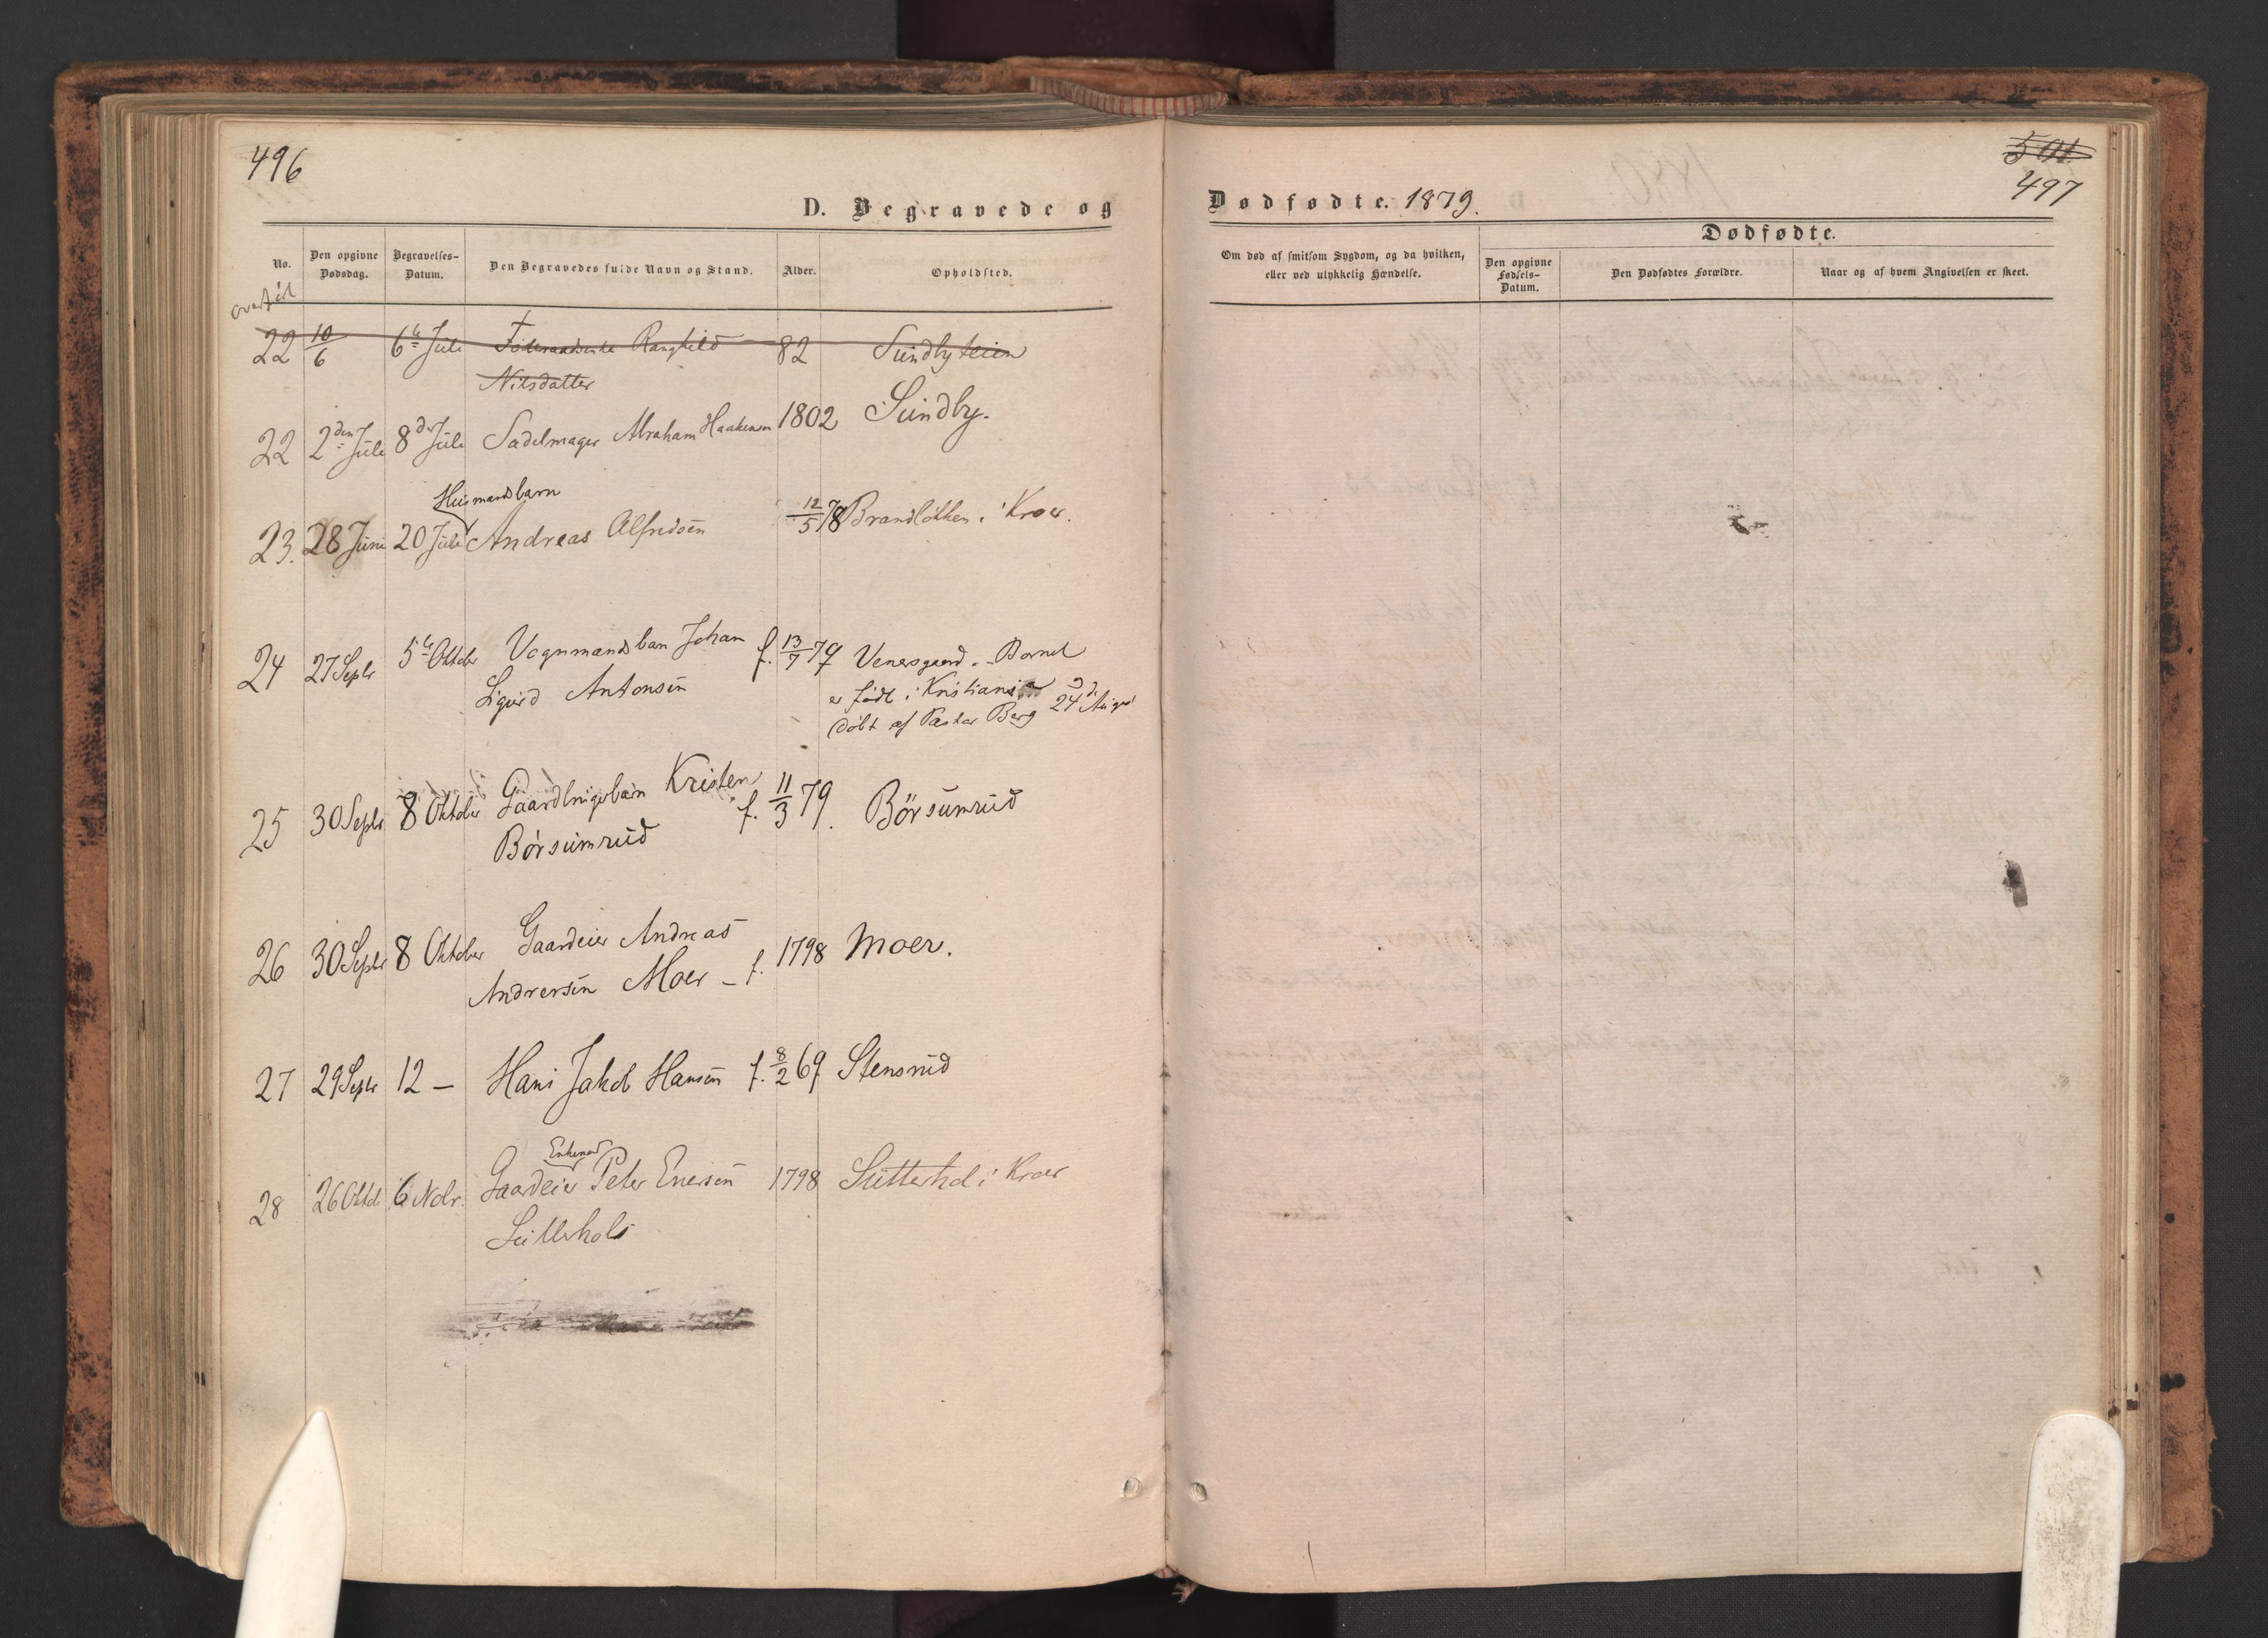 496
D. Begravede og
No.
Den opgivne Dødsdag.
Begravelses-Datum.
Den Begravedes fulde Navn og Stand.
Alder.
Opholdsted.
overført
22 10/6 6te Juli Føderaadsenke Ranghild 82 Sundbyteien
Nilsdatter
22 2den Juli 8de Juli Sadelmager Abraham Haakensen 1802 Sundby.
Husmandsbarn
23. 28 Juni 20 Juli Andreas Alfredsen 12/5 78 Brandløkken i Kroer.
24 27 Septr 5te Oktober Vognmandsbarn Johan f. 13/7 79 Venersgaard. - Barnet
Sigurd Antonsen er født i Kristiania
døbt af Pastor Berg 24 August
25 30 Septr 8 Oktober Gaardbrugerbarn Kristen f. 11/3 79. Børsumrud
Børsumrud
26 30 Septr 8 Oktober Gaardeier Andreas
Andersen Moer - f. 1798 Moer.
27 29 Septr 12 - Hans Jakob Hansen f. 8/2 69 Stensrud
Enkemand
28 26 Oktb 6 Nobr. Gaardeier Peter Enersen 1798 Sütterhol i Kroer
Sütterhol
501
497
Dødfødte. 1879.
Om død af smitsom Sygdom, og da hvilken,
eller ved ulykkelig Hændelse.
Dødfødte.
Den opgivne Fødsels-Datum.
Den Dødfødtes Forældre.
Naar og af hvem Angivelsen er skeet.